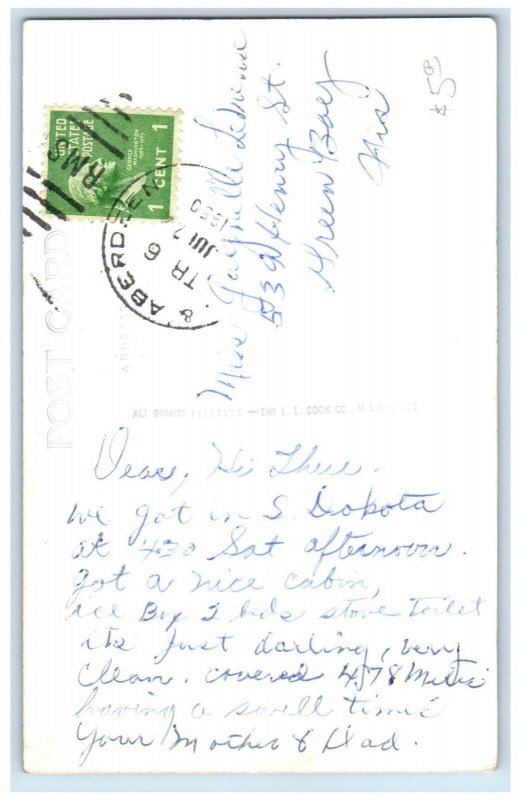 $5.00
UNITED
STATES
POSTAGE
GEORGE
WASHINGTON
1 CENT 1
RMS
& ABERD
TR 6
JUL 7
1950
Miss
539 Henry St.
Green Bay
Wis
POST CARD
ADDRESS
ALL RIGHTS RESERVED —THE L. L. COOK CO., MILWAUKEE
Dear, Hi There.
We got in S. Dakota
at 430 Sat afternoon.
got a nice cabin,
ice Box 2 beds stove toilet
its just darling, very
Clean. covered 4578
having a swell time
Your Mother & Dad.